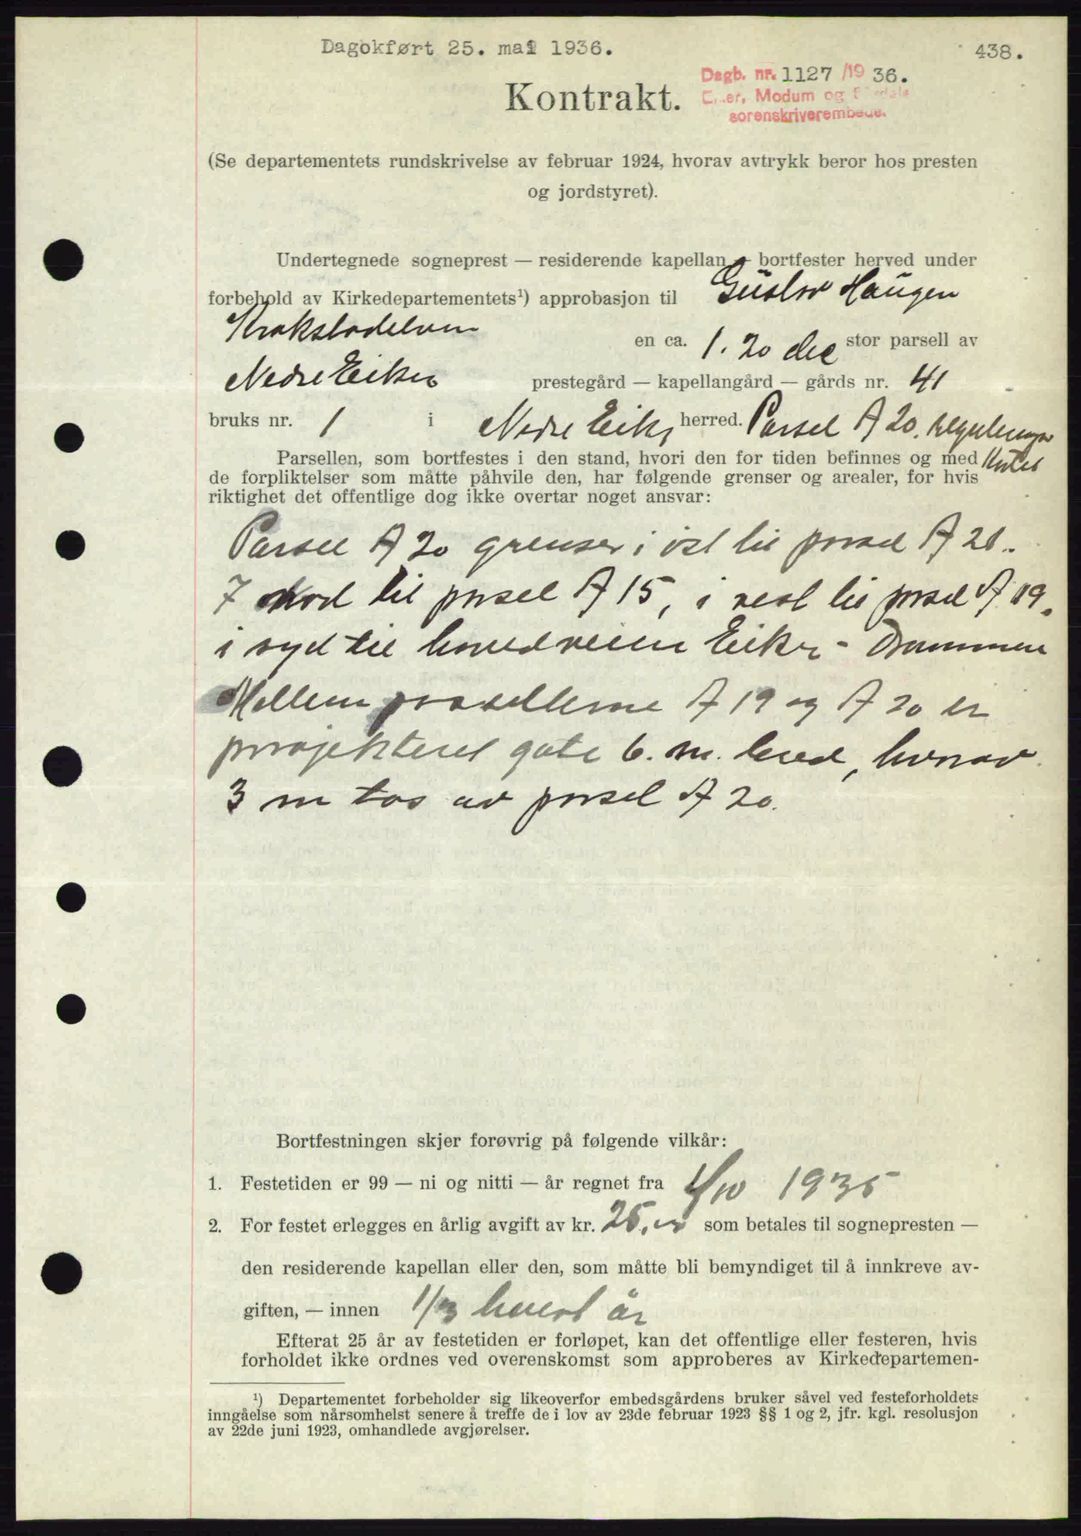 Dagbokført 25. mai 1936.
438.
Dagb. nr. 1127/19 36.
Kontrakt.
Eiker, Modum og Sigdals
sorenskriverembede.
(Se departementets rundskrivelse av februar 1924, hvorav avtrykk beror hos presten
og jordstyret).
Undertegnede sogneprest — residerende kapellan — bortfester herved under
forbehold av Kirkedepartementets¹) approbasjon til Gustav Haugen
Krokstadelven
en ca. 1.20 dec stor parsell av
Nedre Eiker prestegård — kapellangård — gårds nr. 41
bruks nr. 1 i Nedre Eiker herred. Parsel A 20. Regulerings
Parsellen, som bortfestes i den stand, hvori den for tiden befinnes og med kartet
de forpliktelser som måtte påhvile den, har følgende grenser og arealer, for hvis
riktighet det offentlige dog ikke overtar noget ansvar:
Parsel A 20 grenser i øst til parsel A 21.
I nord til parsel A 15, i vest til parsel A 19.
i syd til hovedveien Eiker - Drammen
Mellem parsellerne A 19 og A 20 er
prosjekteret gate 6. m. bred, hvorav
3 m tas av parsel A 20.
Bortfestningen skjer forøvrig på følgende vilkår:
1. Festetiden er 99 — ni og nitti — år regnet fra 1/10 1935
2. For festet erlegges en årlig avgift av kr. 25,00 som betales til sognepresten —
den residerende kapellan eller den, som måtte bli bemyndiget til å innkreve av-
giften, — innen 1/3 hvert år
Efterat 25 år av festetiden er forløpet, kan det offentlige eller festeren, hvis
forholdet ikke ordnes ved overenskomst som approberes av Kirkedepartemen-
¹) Departementet forbeholder sig likeoverfor embedsgårdens bruker såvel ved festeforholdets
inngåelse som nårsomhelst senere å treffe de i lov av 23de februar 1923 §§ 1 og 2, jfr. kgl. resolusjon
av 22de juni 1923, omhandlede avgjørelser.